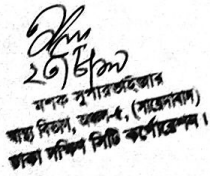 ২৩/৮/২০
মশক সুপারভাইজার
স্বাস্থ্য বিভাগ, অঞ্চল-৫, (সায়েদাবাদ)
ঢাকা দক্ষিণ সিটি কর্পোরেশন।